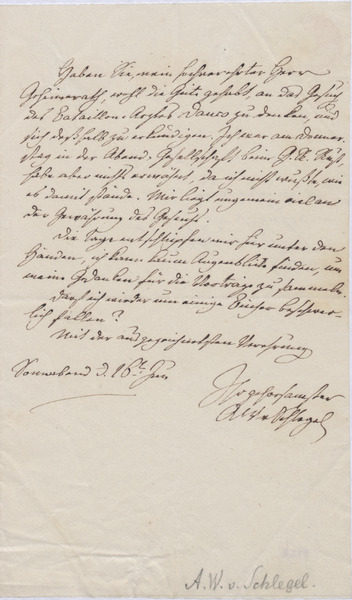 Haben Sie, mein hochverehrter Herr
Geheimerath, wohl die Güte gehabt an das Gesuch
des Bataillons-Arztes Daws zu denken, und
sich deßhalb zu erkundigen. Ich war am Donner-
stag in der Abend-Gesellschaft beim G. R.
habe aber nichts erwähnt, da ich nicht wußte, wie
es damit stände. Mir liegt ungemein viel an
der Gewährung des Gesuchs.
Die Tage entschlüpfen mir hier unter den
Händen, ich kann kaum Augenblicke finden, um
meine Gedanken für die Vorträge zu sammeln.
Darf ich wieder um einige Bücher beschwer-
lich fallen?
Mit der ausgezeichnetsten Verehrung
Sonnabend d. 16ten Jun
Ihr gehorsamster
AWvSchlegel
A. W. v. Schlegel.